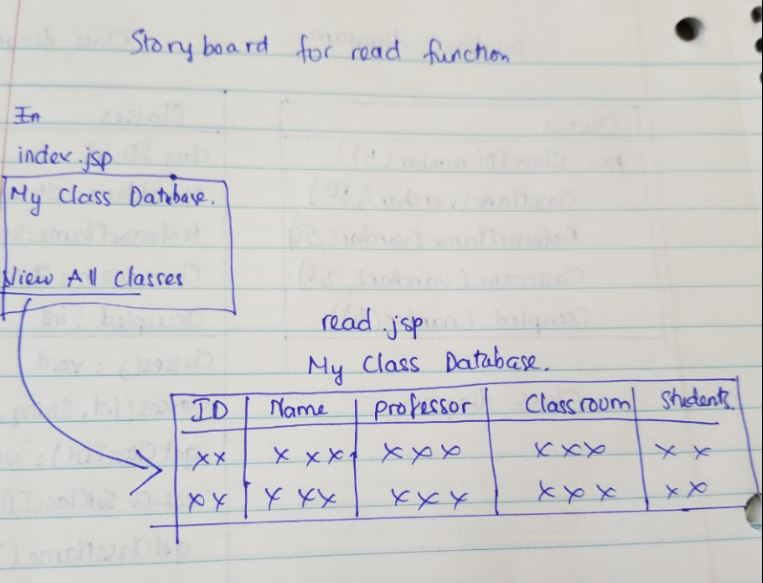 Storyboard for read function
In
index.jsp
My Class Database.
View All Classes
read.jsp
My Class Database.
ID Name Professor Classroom Students
xx x xx xxx xxx xx
xx x xx xxx xxx xx